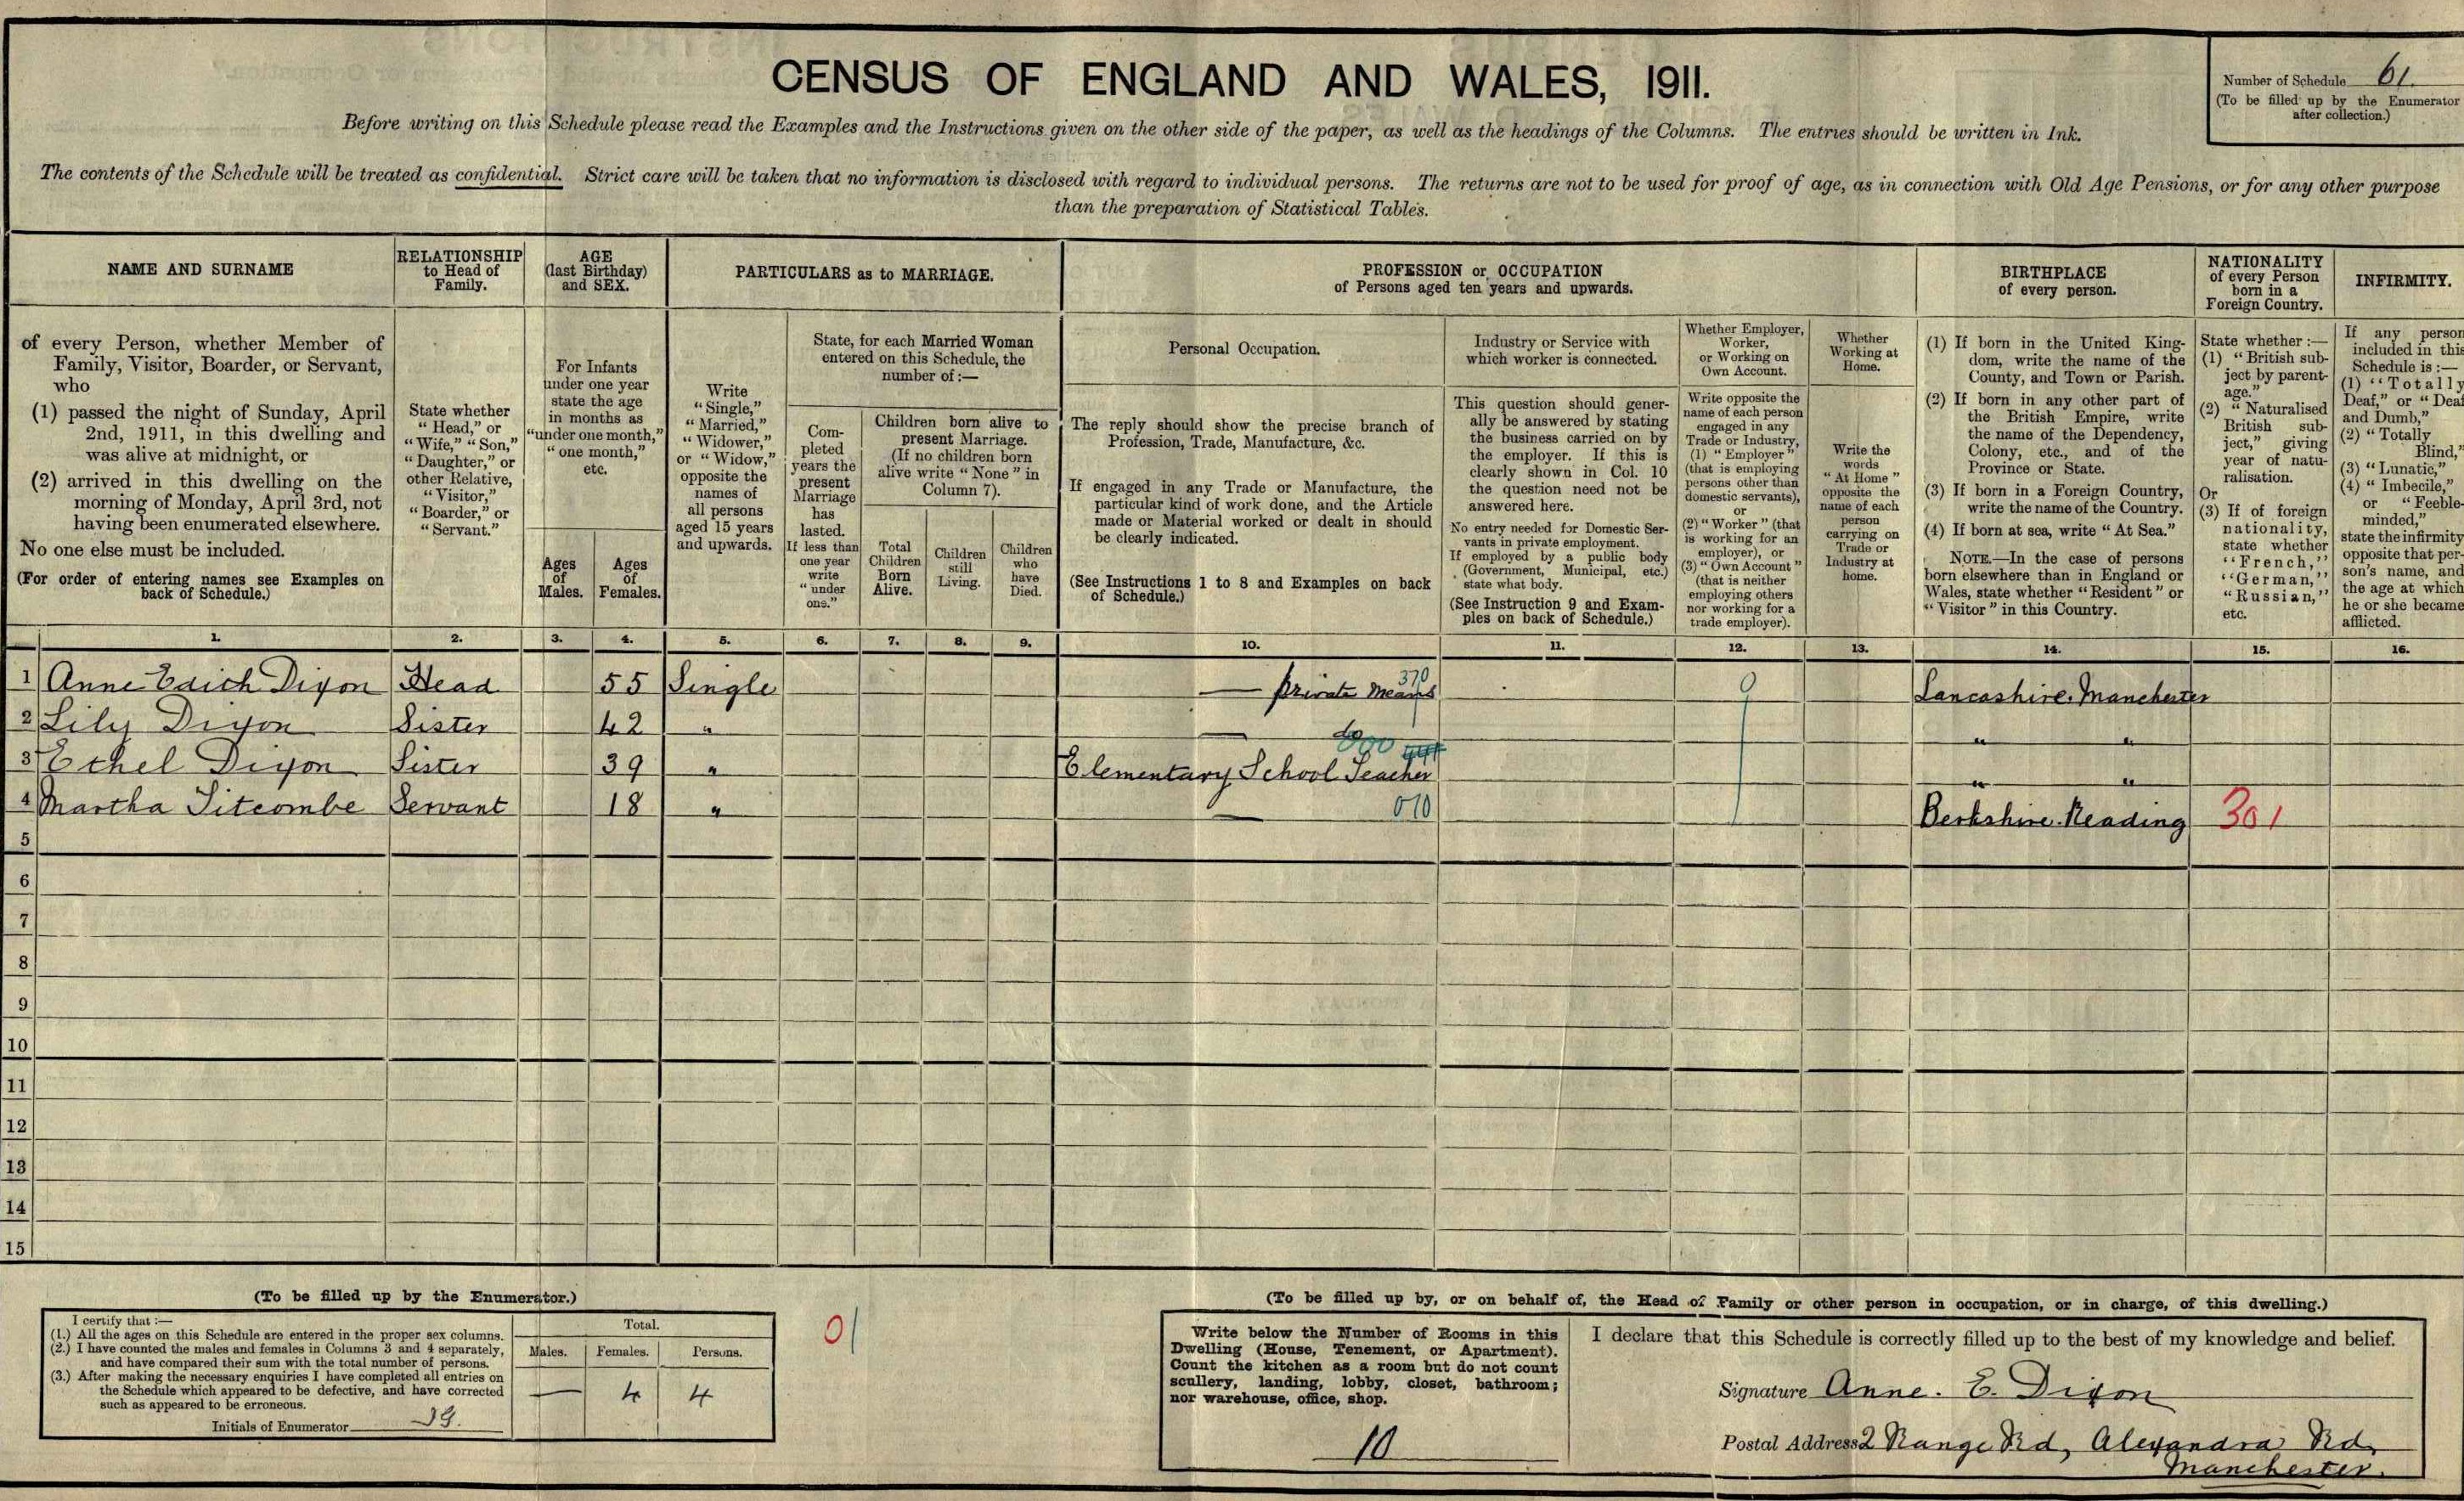 CENSUS OF ENGLAND AND WALES, 1911.
Number of Schedule 61.
(To be filled up by the Enumerator
after collection.)
Before writing on this Schedule please read the Examples and the Instructions given on the other side of the paper, as well as the headings of the Columns. The entries should be written in Ink.
The contents of the Schedule will be treated as confidential. Strict care will be taken that no information is disclosed with regard to individual persons. The returns are not to be used for proof of age, as in connection with Old Age Pensions, or for any other purpose
than the preparation of Statistical Tables.
NAME AND SURNAME
of every Person, whether Member of
Family, Visitor, Boarder, or Servant,
who
(1) passed the night of Sunday, April
2nd, 1911, in this dwelling and
was alive at midnight, or
(2) arrived in this dwelling on the
morning of Monday, April 3rd, not
having been enumerated elsewhere.
No one else must be included.
(For order of entering names see Examples on
back of Schedule.)
RELATIONSHIP
to Head of
Family.
State whether
"Head," or
"Wife," "Son,"
"Daughter," or
other Relative,
"Visitor,"
"Boarder," or
"Servant."
AGE
(last Birthday)
and SEX.
For Infants
under one year
state the age
in months as
"under one month,"
"one month,"
etc.
Ages
of
Males.
Ages
of
Females.
PARTICULARS as to MARRIAGE.
Write
"Single,"
"Married,"
"Widower,"
or "Widow,"
opposite the
names of
all persons
aged 15 years
and upwards.
State, for each Married Woman
entered on this Schedule, the
number of :—
Com-
pleted
years the
present
Marriage
has
lasted.
If less than
one year
write
"under
one."
Children born alive to
present Marriage.
(If no children born
alive write "None" in
Column 7).
Total
Children
Born
Alive.
Children
still
Living.
Children
who
have
Died.
PROFESSION or OCCUPATION
of Persons aged ten years and upwards.
Personal Occupation.
The reply should show the precise branch of
Profession, Trade, Manufacture, &c.
If engaged in any Trade or Manufacture, the
particular kind of work done, and the Article
made or Material worked or dealt in should
be clearly indicated.
(See Instructions 1 to 8 and Examples on back
of Schedule.)
Industry or Service with
which worker is connected.
This question should gener-
ally be answered by stating
the business carried on by
the employer. If this is
clearly shown in Col. 10
the question need not be
answered here.
No entry needed for Domestic Ser-
vants in private employment.
If employed by a public body
(Government, Municipal, etc.)
state what body.
(See Instruction 9 and Exam-
ples on back of Schedule.)
Whether Employer,
Worker,
or Working on
Own Account.
Write opposite the
name of each person
engaged in any
Trade or Industry,
(1) "Employer"
(that is employing
persons other than
domestic servants),
or
(2) "Worker" (that
is working for an
employer), or
(3) "Own Account"
(that is neither
employing others
nor working for a
trade employer).
Whether
Working at
Home.
Write the
words
"At Home"
opposite the
name of each
person
carrying on
Trade or
Industry at
home.
BIRTHPLACE
of every person.
(1) If born in the United King-
dom, write the name of the
County, and Town or Parish.
(2) If born in any other part of
the British Empire, write
the name of the Dependency,
Colony, etc., and of the
Province or State.
(3) If born in a Foreign Country,
write the name of the Country.
(4) If born at sea, write "At Sea."
NOTE.—In the case of persons
born elsewhere than in England or
Wales, state whether "Resident" or
"Visitor" in this Country.
NATIONALITY
of every Person
born in a
Foreign Country.
State whether :—
(1) "British sub-
ject by parent-
age."
(2) "Naturalised
British sub-
ject," giving
year of natu-
ralisation.
Or
(3) If of foreign
nationality,
state whether
"French,"
"German,"
"Russian,"
etc.
INFIRMITY.
If any person
included in this
Schedule is :—
(1) "Totally
Deaf," or "Deaf
and Dumb,"
(2) "Totally
Blind,"
(3) "Lunatic,"
(4) "Imbecile,"
or "Feeble-
minded,"
state the infirmity
opposite that per-
son's name, and
the age at which
he or she became
afflicted.
1. 2. 3. 4. 5. 6. 7. 8. 9. 10. 11. 12. 13. 14. 15. 16.
1 Anne Edith Dixon Head 55 Single — private means 370 Lancashire Manchester
2 Lily Dixon Sister 42 " — do " "
3 Ethel Dixon Sister 39 " Elementary School Teacher " "
4 Martha Titcombe Servant 18 " — 010 Berkshire Reading 301
5
6
7
8
9
10
11
12
13
14
15
(To be filled up by the Enumerator.)
I certify that :—
(1.) All the ages on this Schedule are entered in the proper sex columns.
(2.) I have counted the males and females in Columns 3 and 4 separately,
and have compared their sum with the total number of persons.
(3.) After making the necessary enquiries I have completed all entries on
the Schedule which appeared to be defective, and have corrected
such as appeared to be erroneous.
Initials of Enumerator
Total.
Males. Females. Persons.
— 4 4
01
(To be filled up by, or on behalf of, the Head of Family or other person in occupation, or in charge, of this dwelling.)
Write below the Number of Rooms in this
Dwelling (House, Tenement, or Apartment).
Count the kitchen as a room but do not count
scullery, landing, lobby, closet, bathroom;
nor warehouse, office, shop.
10
I declare that this Schedule is correctly filled up to the best of my knowledge and belief.
Signature Anne. E. Dixon
Postal Address 2 Range Rd, Alexandra Rd,
Manchester.